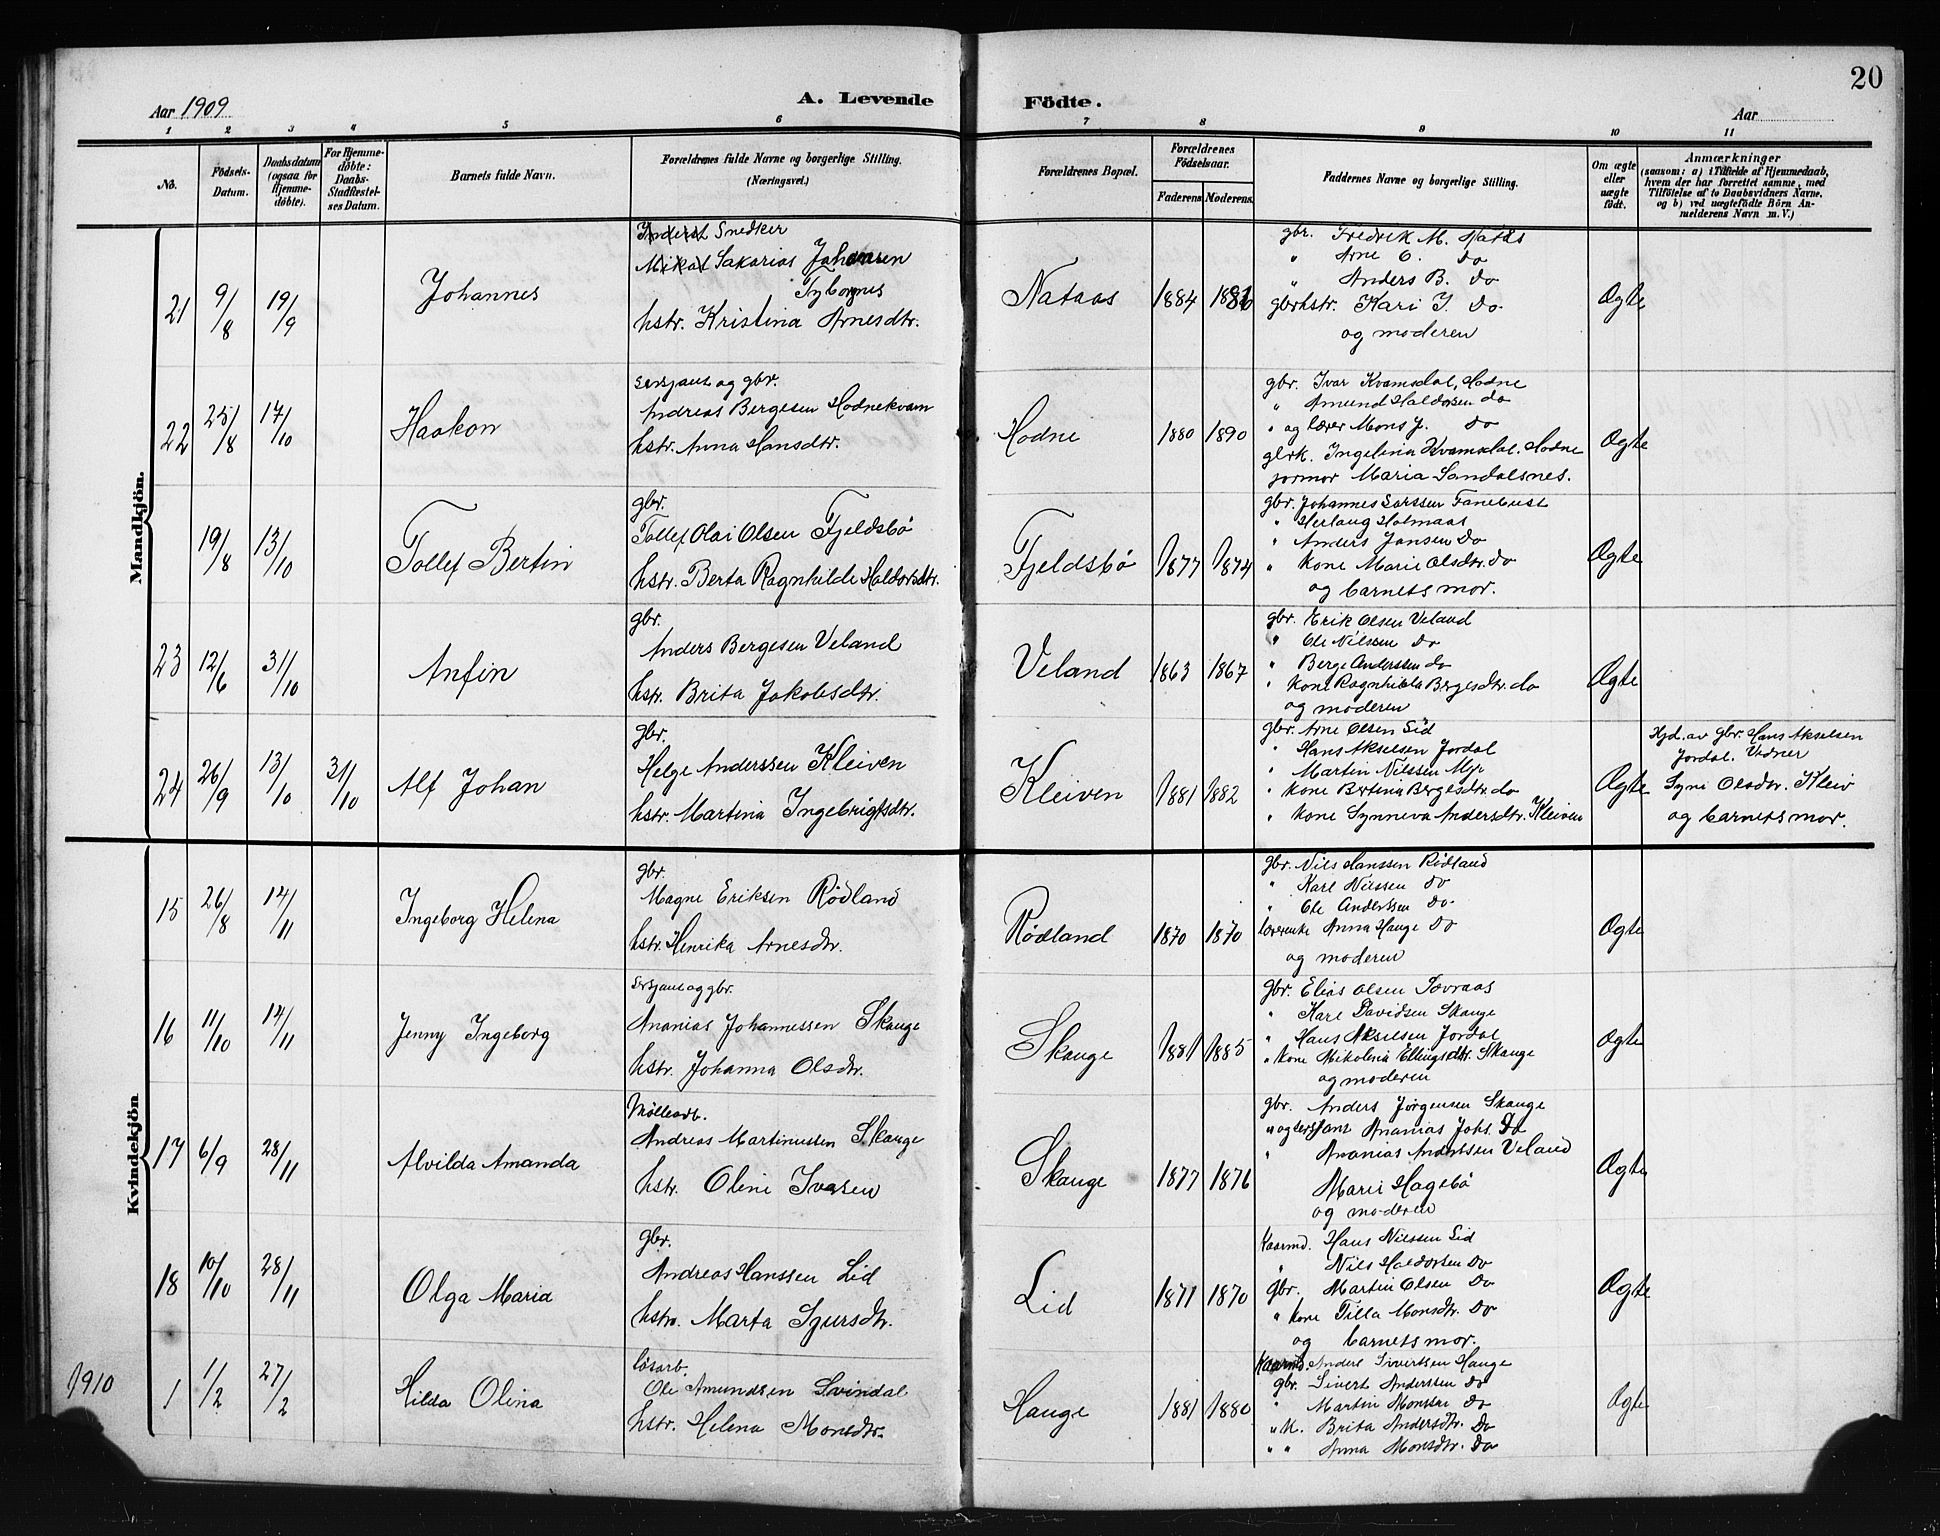 20
Aar 1909
A. Levende Födte.
Aar
1 2 3 4 5 6 7 8 9 10 11
No.
Födsels-
Datum.
Daabsdatum
(ogsaa for
Hjemme-
döbte).
For Hjemme-
döbte:
Daabs-
Stadfæstel-
ses Datum.
Barnets fulde Navn.
Forældrenes fulde Navne og borgerlige Stilling.
(Næringsvei.)
Forældrenes Bopæl.
Forældrenes
Födselsaar.
Faderens Moderens
Faddernes Navne og borgerlige Stilling.
Om ægte
eller
uægte
födt.
Anmærkninger
(saasom: a) i Tilfælde af Hjemmedaab,
hvem der har forrettet samme, med
Tilföielse af to Daabsvidners Navne.
og b) ved uægtefödte Börn An-
melderens Navn m. V.)
Mandkjön.
21
9/8
19/9
Johannes
Snedker
Sakarias Johansen
hstr. Kristina Arnesdtr.
Nataas
1884
gbr. Fredrik M. Nataas
" Arne O. do
" Anders B. do
gbrkstr. Kari J. do
og moderen
Ægte
22
25/8
17/10
Haakon
sersjant og gbr.
Andreas Bergesen Hodnekvam
hstr. Anna Hansdtr.
Hodne
1880 1890
gbr. Ivar Kvamsdal, Hodne
" Amund Haldorsen do
" og lærer Mons J. do
gbrk. Ingelina Kvamsdal. Hodne
jormor Maria Sandalsnes.
Ægte
19/8
13/10
Tollef Bertin
gbr.
Tollef Olai Olsen Fjeldsbö
hstr. Berta Ragnhilde Haldorsdtr.
Fjeldsbö
1877 1874
gbr. Johannes Larssen Fanebust
" Herlaug Holmaas
" Anders Jansen do
" kone Marie Olsdtr. do
og barnets mor.
Ægte
23
12/6
31/10
Anfin
gbr.
Anders Bergesen Veland
hstr. Brita Jakobsdtr.
Veland
1863 1867
gbr. Erik Olsen Veland
" Ole Nilssen do
" Berge Anderssen do
" kone Ragnhilda Bergesdtr. do
og moderen
Ægte
24
26/9
13/10
31/10
Alf Johan
gbr.
Helge Anderssen Kleiven
hstr. Martina Ingebrigtsdtr.
Kleiven
1881 1882
gbr. Arne Olsen Lid
" Hans Akselsen Jordal
" Martin Nilssen Myr
" kone Bertina Bergesdtr. do
" kone Synneva Andersdtr. Kleiven
Ægte
Hjd. av gbr. Hans Akselsen
Jordal. Vidner
Syni Olsdtr. Kleiv
og barnets mor.
Kvindekjön
15
26/8
14/11
Ingeborg Helena
gbr.
Magne Eriksen Rödland
hstr. Henrika Arnesdtr.
Rödland
1870 1870
gbr. Nils Hanssen Rödland
" Karl Nilssen do
" Ole Anderssen do
lærerenke Anna Hauge do
og moderen
Ægte
16
11/10
14/11
Jenny Ingeborg
sersjant og gbr.
Ananias Johannessen Skauge
hstr. Johanna Olsdtr.
Skauge
1881 1885
gbr. Elias Olsen Tævraas
" Karl Davidsen Skauge
" Hans Akselsen Jordal
" kone Nikolina Ellingsdtr. Skauge
og moderen
Ægte
17
6/9
28/11
Alvilda Amanda
Möllearb.
Andreas Martinussen Skauge
hstr. Oline Ivarsen
Skauge
1877 1876
gbr. Anders Jörgensen Skauge
" og sersjant Ananias Johs. Do
" Ananias Anderssen Veland
Marie Hagebö
og moderen
Ægte
18
10/10
28/11
Olga Maria
gbr.
Andreas Hanssen Lid
hstr. Marta Sjursdtr.
Lid
1871 1870
Kaarmd. Hans Nilssen Lid
" Nils Haldorsen Do
gbr. Martin Olsen Do
" kone Tilla Monsdtr. Do
og barnets mor.
Ægte
1910
1
1/2
27/2
Hilda Olina
lösarb.
Ole Amundsen Svindal
hstr. Helena Monsdtr.
Hauge
1881 1880
Kaarmd. Anders Sivertsen Hauge
gbr. Sivert Anderssen Do
" Martin Monssen Do
" K. Brita Andersdtr. Do
" " Anna Monsdtr. Do
Ægte